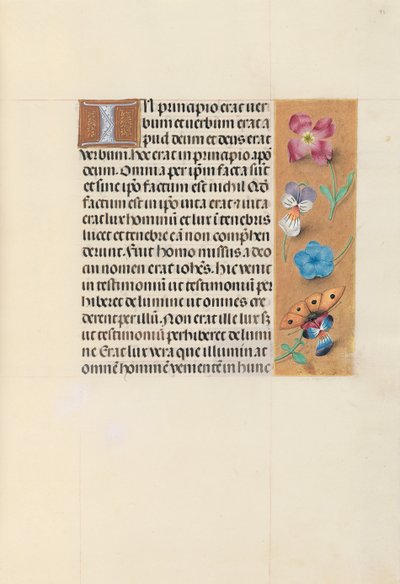 In principio erat ver
bum et verbum erat a
pud deum et deus erat
verbum. hoc erat in principio apd̄
deum. Omnia per ip̄m facta sūt
et sine ip̄o factum est nichil Qd̄
factum est in ip̄o vita erat et vita
erat lux hominū et lux ī tenebris
lucet et tenebre eā non comp̄hen
derunt. Fuit homo missus a deo
cui nomen erat ioh̄es. hic venit
in testimoniū ut testimoniū per
hiberet de lumine ut omnes cre
derent per illū. Non erat ille lux sz
ut testimoniū perhiberet de lumi
ne Erat lux vera que illuminat
omnē hominē venientē in hunc